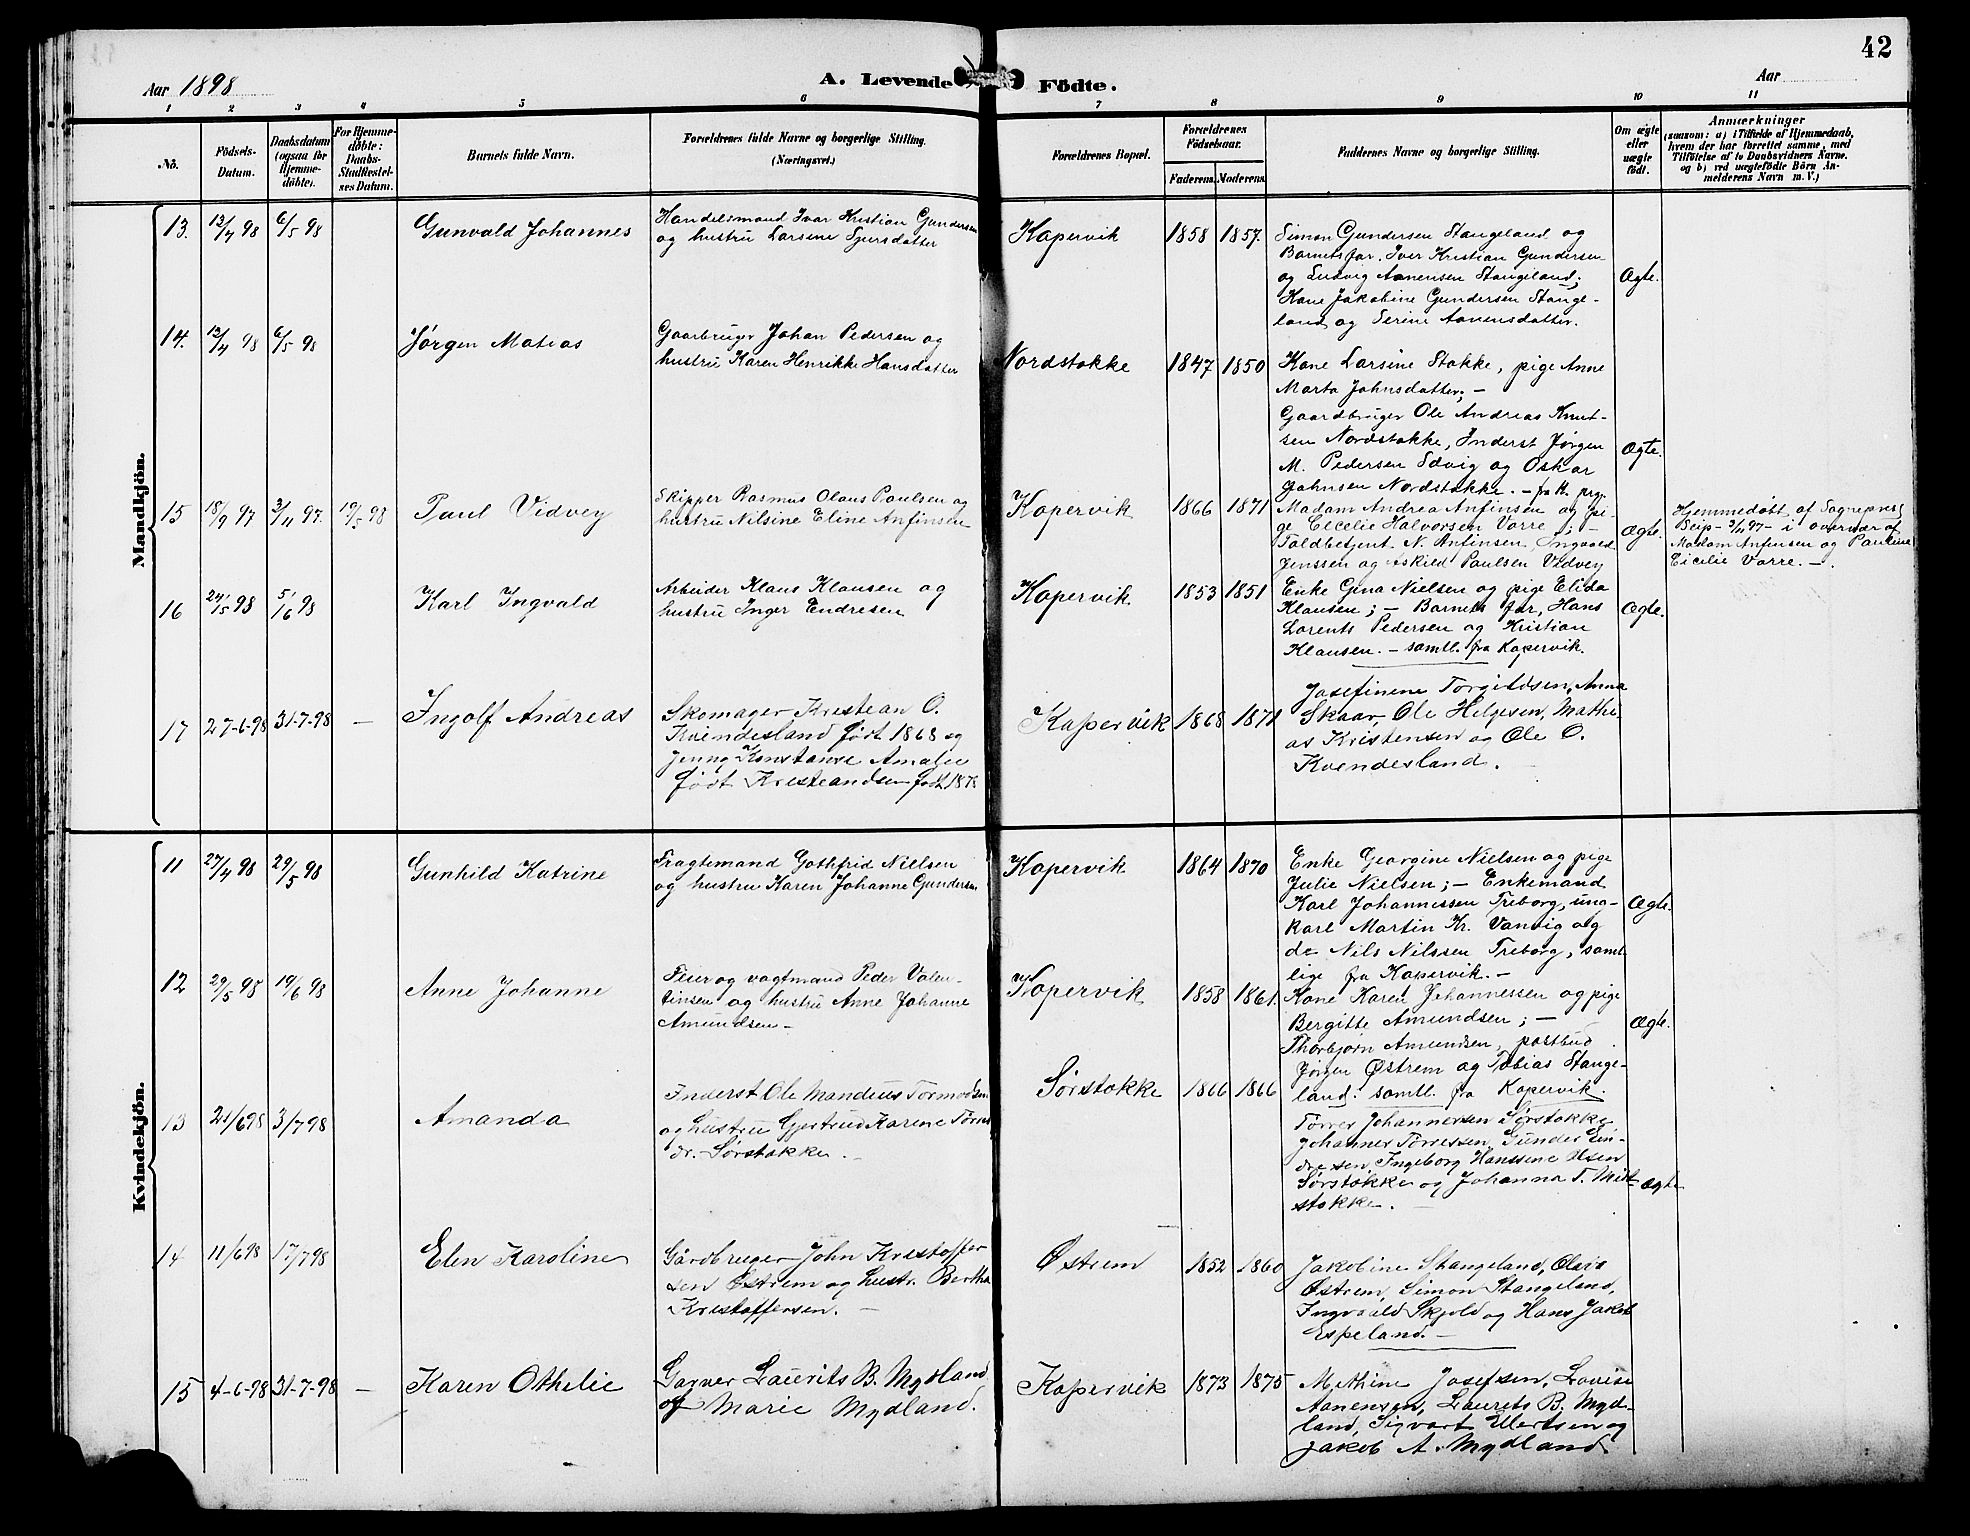 42
Aar 1898
A. Levende Födte.
Aar
1 2 3 4 5 6 7 8 9 10 11
No.
Födsels-Datum.
Daabsdatum (ogsaa for Hjemmedöbte).
For Hjemmedöbte: Daabs-Stadfæstelses Datum.
Barnets fulde Navn.
Forældrenes fulde Navne og borgerlige Stilling.
(Næringsvei.)
Forældrenes Bopæl.
Forældrenes Födselsaar.
Faderens. Moderens.
Faddernes Navne og borgerlige Stilling.
Om ægte eller uægte födt.
Anmærkninger
(saasom: a) i Tilfælde af Hjemmedaab, hvem der har forrettet samme, med Tilföielse af to Daabsvidners Navne, og b) ved uægtefödte Börn Anmelderens Navn m. V.)
Mandkjön.
13. 12/4 98 6/5 98 Gunvald Johannes
Handelsmand Ivar Kristian Gundersen
og hustru Larsine Sjursdatter
Kopervik 1858 1857.
Simon Gundersen Stangeland og
Barnets far, Iver Kristian Gundersen
og Ludvig Aanensen Stangeland;
Kone Jakobine Gundersen Stange-
land og Serine Aanensdatter.
Ægte.
14. 12/4 98 6/5 98 Jørgen Matias
Gaarbruger Johan Pedersen og
hustru Karen Henrikke Hansdatter
Nordstokke 1847 1850
Kone Larsine Stokke, pige Anne
Marta Johnsdatter; -
Gaardbruger Ole Andreas Knut-
sen Nordstokke, Inderst Jørgen
M. Pedersen Edvig og Oskar
Johnsen Nordstokke. -
Ægte.
15 18/9 97 3/11 97. 19/5 98 Paul Vidvey
Skipper Rasmus Olaus Paulsen og
hustru Nilsine Eline Anfinsen
Kopervik 1866 1871
Madam Andrea Anfinsen og pi-
ge Cecelie Halvorsen Vorre; -
Toldbetjent N. Anfinsen, Ingvald
Jenssen og Askild Paulsen Vidvey
Ægte.
Hjemmedøbt af Sognepres
Seip - 3/11 97 - i overvær af
Madam Anfinsen og Pauline
Cicilie Vorre. -
16 24/5 98 5/6 98 Karl Ingvald
Arbeider Klaus Klausen og
hustru Inger Endresen
Kopervik 1853 1851
Enke Gina Nielsen og pige Elida
Klausen; - Barnets far, Hans
Lorents Pedersen og Kristian
Klausen. - samtl. fra Kopervik.
Ægte.
17 27-6-98 31-7-98 - Ingolf Andreas
Skomager Kristean O.
Kvendesland født 1868 og
Jenny Konstanse Amalie
født Kristeandsen født 1871
Kopervik 1868 1871
Josefinene Torgildsen, Anna
Skaar, Ole Helgesen, Mathi-
as Kristensen og Ole O.
Kvendesland.
Kvindekjön.
11 27/4 98 29/5 98 Gunhild Katrine
Fragtemand Gothfrid Nielsen
og hustru Karen Johanne Gundersen
Kopervik 1864 1870
Enke Georgine Nielsen og pige
Julie Nielsen; - Enkemand
Karl Johannessen Treborg, ung-
karl Martin Kr. Vanvig og
do Nils Nilssen Treborg, samt-
lige fra Kopervik. -
Ægte.
12 29/5 98 19/6 98 Anne Johanne
Feier og vagtmand Peder Valen-
tinsen og hustru Anne Johanne
Amundsen -
Kopervik 1858 1861.
Kone Karen Johannessen og pige
Bergitte Amundsen; -
Thorbjørn Amundsen, postbud
Jørgen Østrem og Tobias Stange-
land. samtl. fra Kopervik.
Ægte.
13 21/6 98 3/7 98 Amanda
Inderst Ole Mandius Tormodsen
og hustru Gjertrud Karine Tørres
dr. Sørstokke. -
Sørstokke 1866 1866
Tørres Johannesen Sørstokke
Johannes Tørresen, Gunder En-
dresen, Ingeborg Hanssine Olsen
Sørstokke og Johanna T. Midt-
stokke.
Ægte
14 11/6 98 17/7 98 Elen Karoline
Gårdbruger John Kristoffer-
sen Østrem og hustr. Bertha
Kristoffersen. -
Østrem 1852 1860
Jakobine Stangeland,
Østrem, Simon Stangeland,
Ingvald Skjold og Hans Jakob
Espeland. -
15 4-6-98 31-7-98 - Karen Othelie
Garver Laurits B. Mydland
og Marie Mydland.
Kopervik 1873 1875
Methine Josefsen, Lovise
Aanensen, Laurits B. Myd-
land, Sigvart Ulertsen og
Jakob A. Mydland